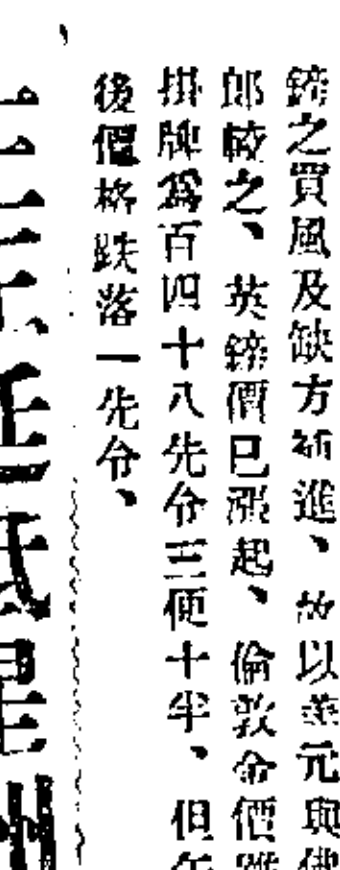 鎊之買風及缺方補進、故以美元與佛
郎較之、英鎊價已漲起、倫敦金價雖
掛牌爲百四十八先令三便士半、但午
後價格跌落一先令、